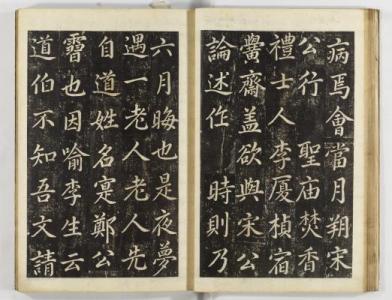 病焉會當月朔宋
公行 聖庙焚香
禮士人李厦楨宿
黌齋盖欲與宋公
論述作 時則乃
六月晦也是夜夢
遇一老人老人先
自道姓名寔鄭公
也因喻李生云
道伯不知吾文請